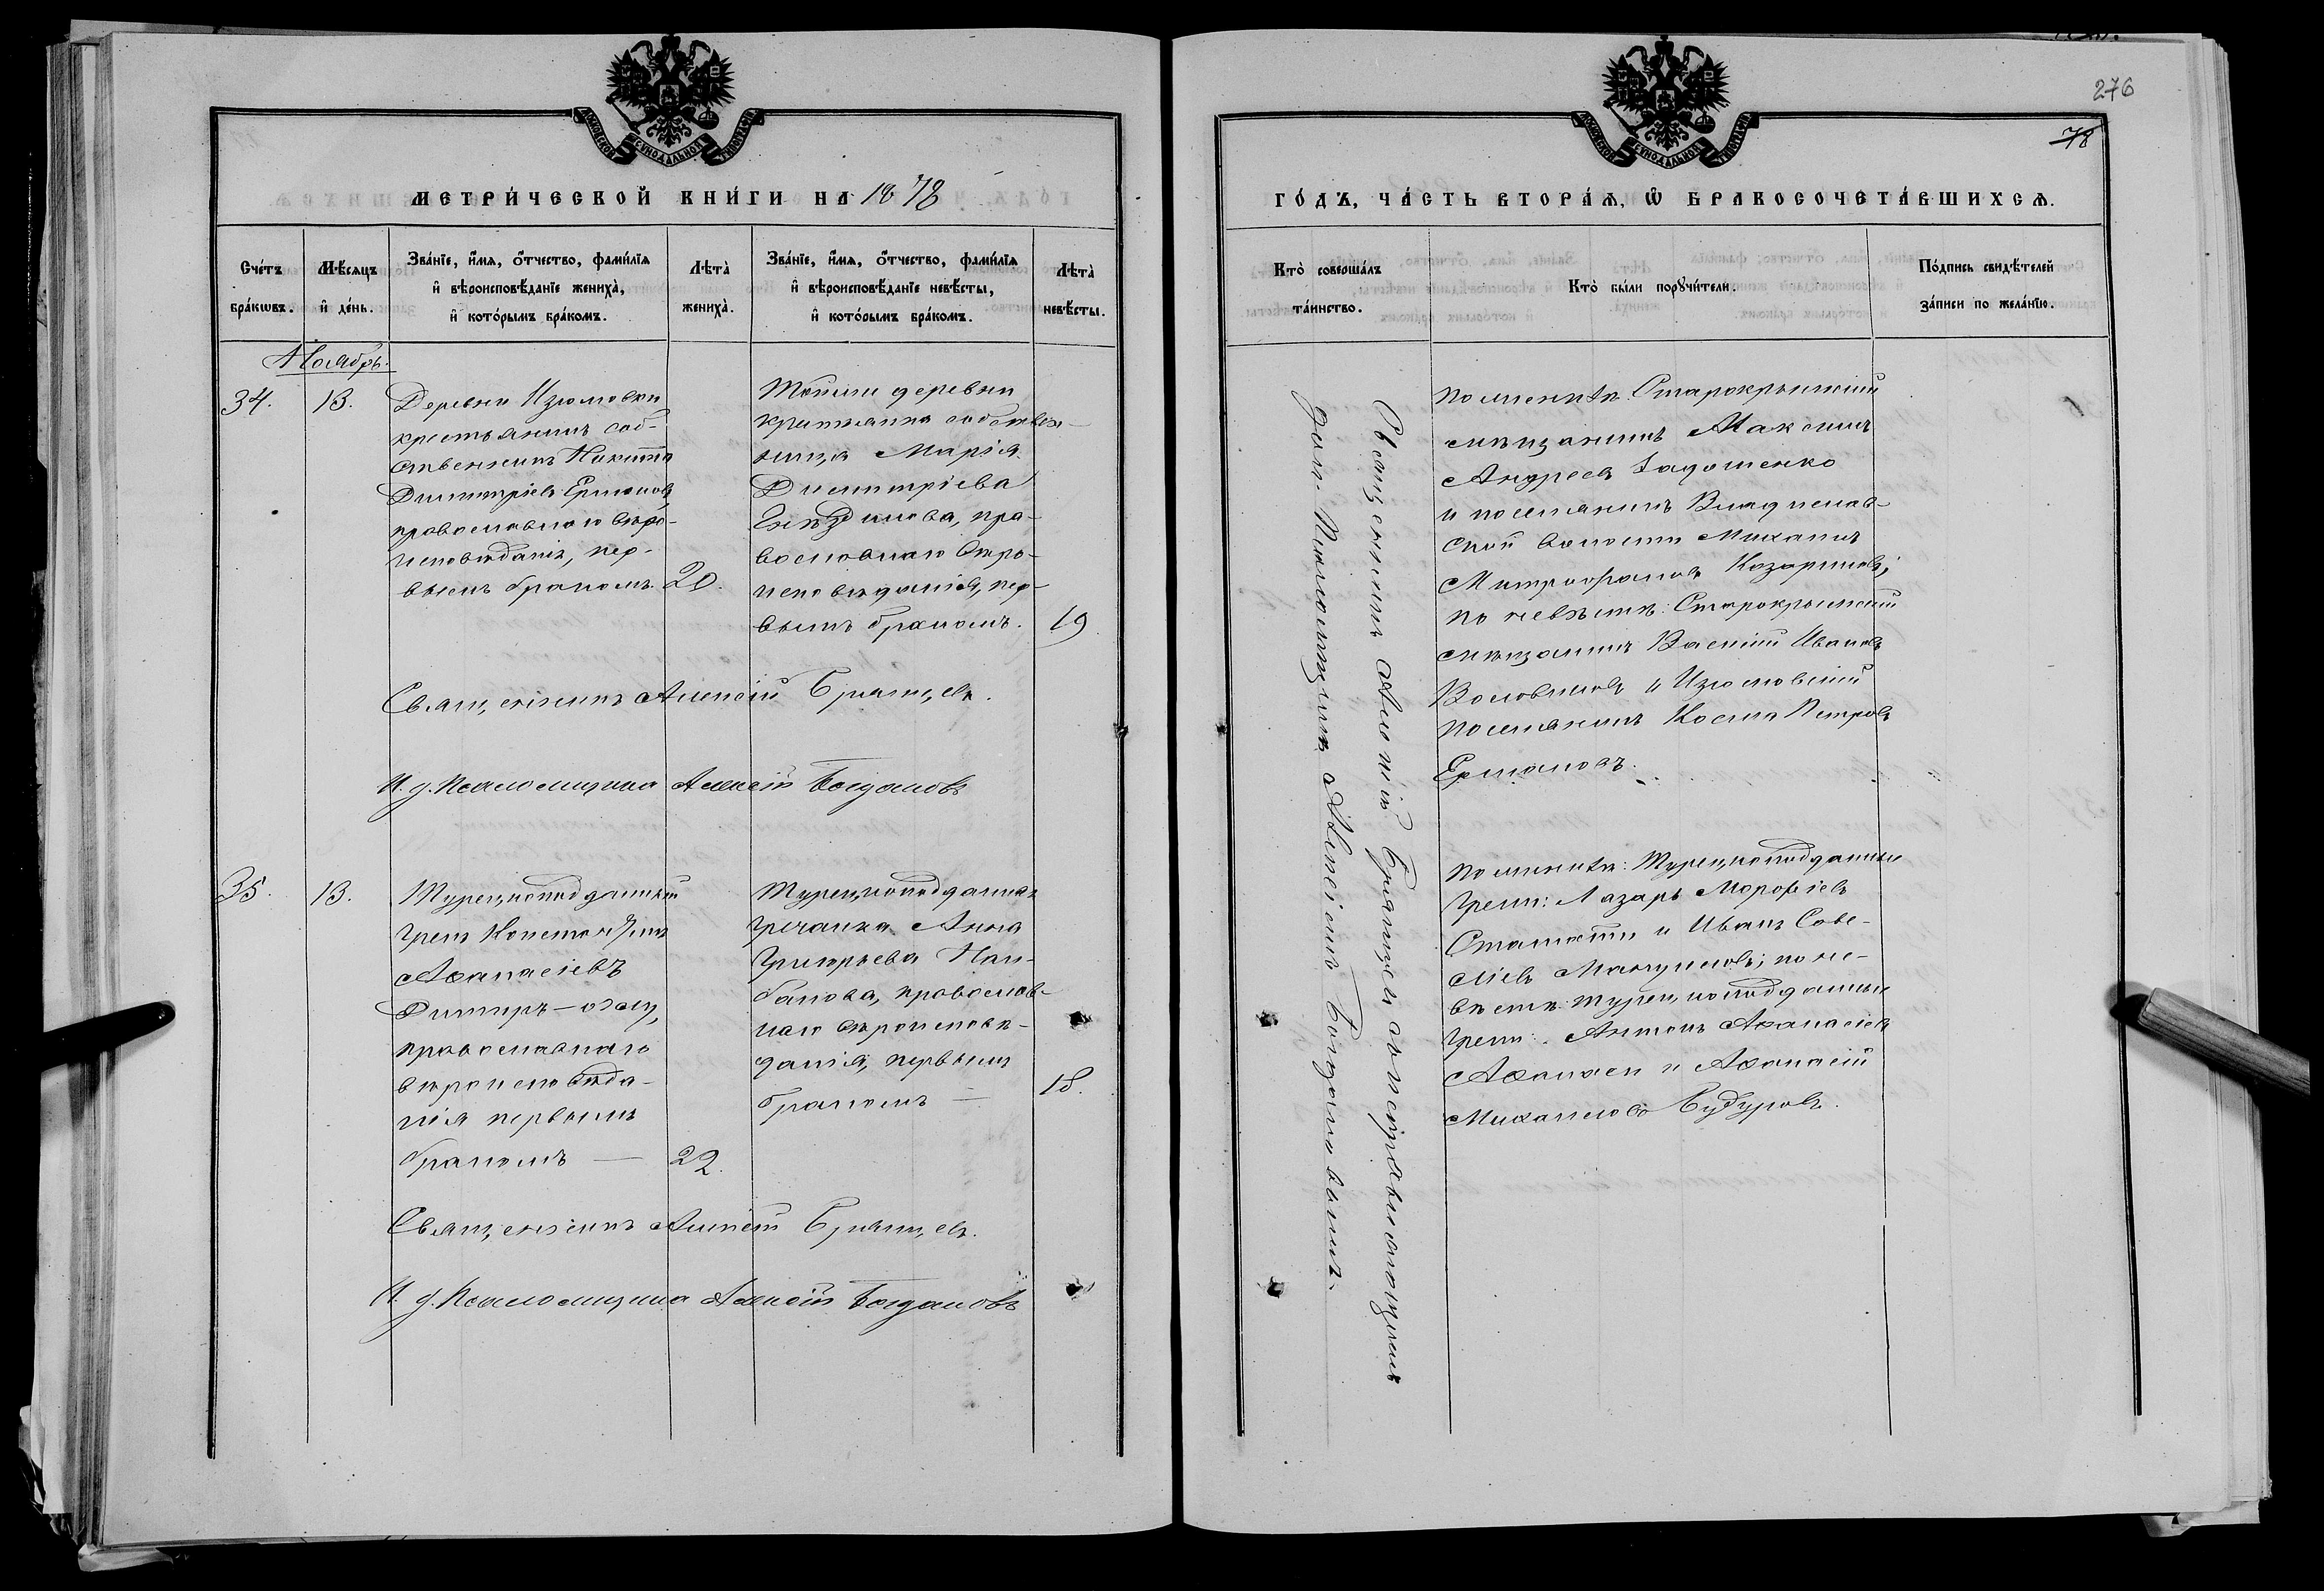 МОСКОВСКОЙ СѴНОДАЛЬНОЙ ТИПОГРАФІИ
МЕТРИ́ЧЕСКОЙ КНИ́ГИ НА 1878
Сче́тъ бра́кωвъ.
Мѣ́сяцъ и҆ де́нь.
Зва́нїе, и҆́мя, ѻ҆́тчество, фами́лїя
и҆ вѣроисповѣ́данїе жениха̀,
и҆ кото́рымъ бра́комъ.
Лѣта̀ жениха̀.
Зва́нїе, и҆́мя, ѻ҆́тчество, фами́лїя
и҆ вѣроисповѣ́данїе невѣ́сты,
и҆ кото́рымъ бра́комъ.
Лѣта̀ невѣ́сты.
Ноябрь.
34.
13.
Деревни Изюмовки
крестьянинъ соб-
ственникъ Никита
Димитріевъ Ермановъ,
православнаго вѣро-
исповѣданія, пер-
вымъ бракомъ.
20.
Той же деревни
крестьянка собствен-
ница Марія
Димитріева
православнаго вѣро-
исповѣданія, пер-
вымъ бракомъ.
19
Священникъ Алексій Брянцевъ.
И. д. Псаломщика Алексѣй Богдановъ
35.
13.
Турецкоподданный
Грекъ Константинъ
Аѳанасіевъ
Димиръ-оглу,
православнаго
вѣроисповѣда-
нія первымъ
бракомъ —
22.
Турецкоподданная
гречанка Анна
Григорьева
православ-
наго вѣроисповѣ-
данія, первымъ
бракомъ —
18.
Священникъ Алексій Брянцевъ.
И. д. Псаломщика Алексѣй Богдановъ
276
78
ГО́ДЪ, ЧА́СТЬ ВТОРА́Я, Ѽ БРАКОСОЧЕТА́ВШИХСЯ.
Кто̀ соверша́лъ та́инство.
Кто̀ бы́ли порꙋчи́тели.
По́дпись свидѣ́телей за́писи по жела́нїю.
Священникъ Алексій Брянцевъ съ исправляющимъ
дол. Псаломщика Алексіемъ Богдановымъ.
По женихѣ: Старокрымскій
мѣщанинъ Максимъ
Андреевъ
и поселянинъ Владислав-
ской волости Михаилъ
Митрофановъ Казариновъ;
по невѣстѣ: Старокрымскій
мѣщанинъ Василій Ивановъ
Воловиковъ и Изюмовскій
поселянинъ Косма Петровъ
Ермановъ.
По женихѣ: Турецкоподданные
Греки: Лазарь
Стамати и Иванъ Саве-
ліевъ Мануиловъ; по не-
вѣстѣ: турецкоподданные
Греки: Антонъ Аѳанасіевъ
Аѳанаси и Аѳанасій
Михаиловъ Будуровъ.